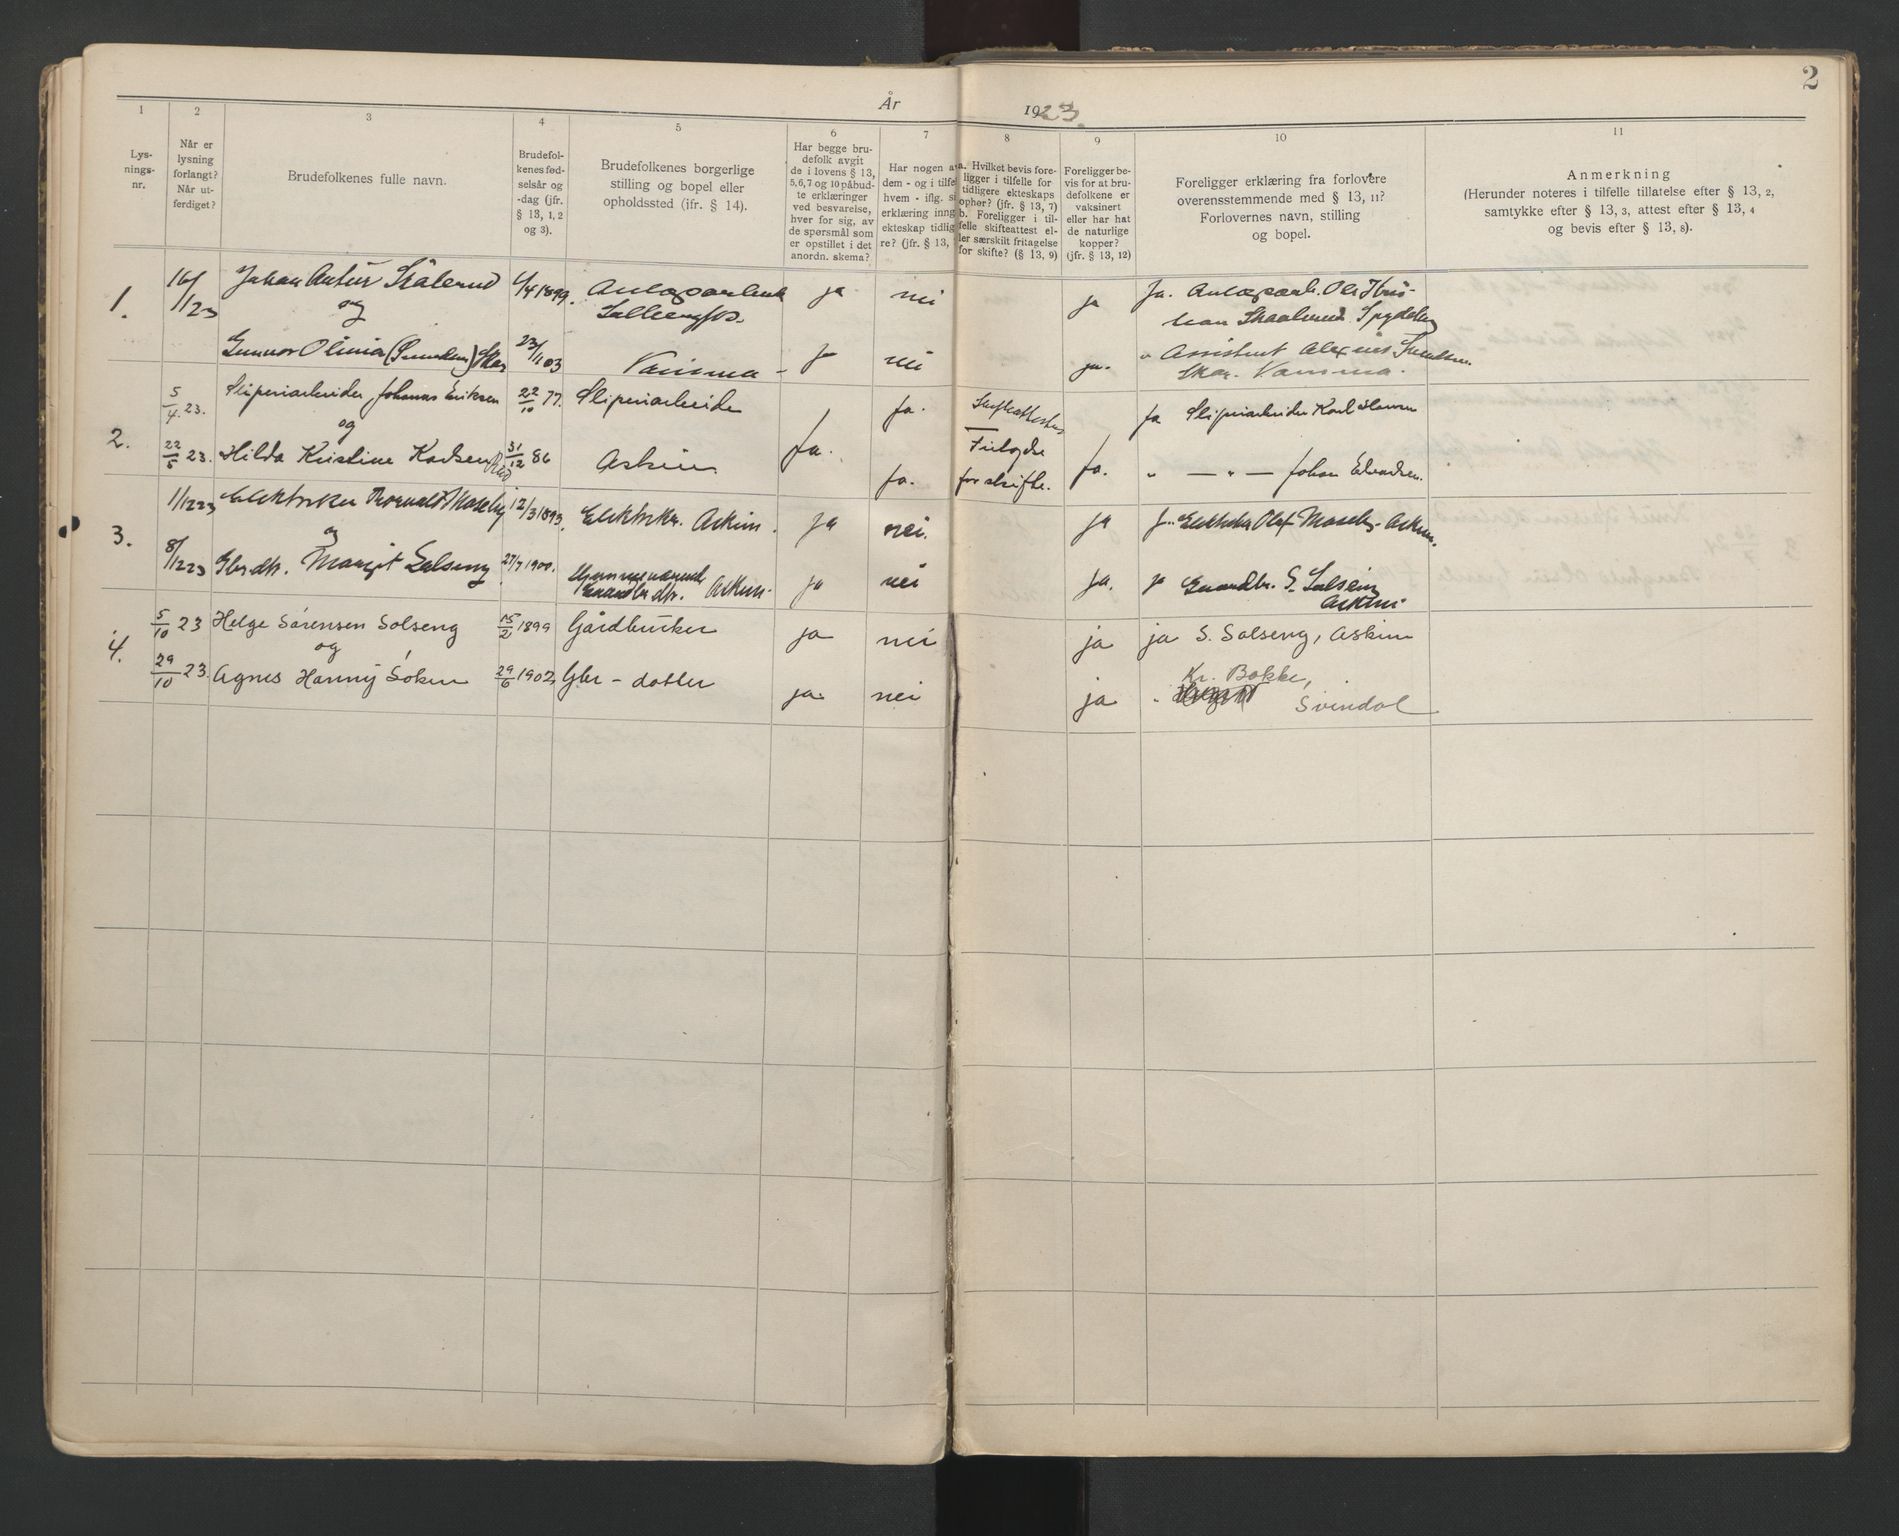 2
År 1923.
1 2 3 4 5 6 7 8 9 10 11
Lys-
nings-
nr.
Når er
lysning
forlangt?
Når ut-
ferdiget?
Brudefolkenes fulle navn.
Brudefol-
kenes fød-
selsår og
-dag (jfr.
§ 13, 1, 2
og 3).
Brudefolkenes borgerlige
stilling og bopel eller
opholdssted (ifr. § 14).
Har begge bru-
defolk avgit
de i lovens § 13,
5, 6, 7 og 10 påbud-
te erklæringer
ved besvarelse,
hver for sig, av
de spørsmål som
er opstillet i det
anordn. skema?
Har nogen a
dem - og i tilfel
hvem - iflg. si
erklæring inng
ekteskap tidlig
re? (jfr. § 13,
a. Hvilket bevis fore-
ligger i tilfelle for
tidligere ekteskaps
ophør? (jfr. § 13, 7)
b. Foreligger i til-
felle skifteattest el-
ler særskilt fritagelse
for skifte? (§ 13, 9)
Foreligger be-
vis for at bru-
defolkene er
vaksinert
eller har hat
de naturlige
kopper?
(jfr. § 13, 12)
Foreligger erklæring fra forlovere
overensstemmende med § 13, 11?
Forlovernes navn, stilling
og bopel.
Anmerkning
(Herunder noteres i tilfelle tillatelse efter § 13, 2,
samtykke efter § 13, 3, attest efter § 13, 4
og bevis efter § 13, 8).
1. 16/1 23 Johan Artur Skålerud 6/4 1899. Anlægsarbeid ja nei ja Ja. Anlægsarb. Ole Kris-
og Solbergfos. tian Skaalerud. Spydeberg
Gunvor Olinia ( ) Skar 23/1 03 Vamma - ja nei ja. " Assistent
Skar. Vamma.
5/4 23. Sliperiarbeider Johannes Eriksen 22/10 77. Sliperiarbeider Ja. Skifteattest Ja Sliperiarbeider Karl Hansen
2. og Ja.
22/5 23. Hilda Kristine Karlsen Rud 31/12 86 Askim Ja. Fritagelse
for skifte. Ja. " — " — Johan Edvardsen.
1/12 23 Elektriker Thorvald Moseby 12/3 1893. Elektrikr. Askim. ja nei. ja j. Elektriker Olaf Moseby - Askim.
3. og
8/12 23 Gbrdtr. Margit Solseng 27/7 1900. Hjemmeværende
Gaardbr dtr. Askim. ja nei ja. ja Gaardbr. S. Solseng
Askim
4. 5/10 23 Helge Sørensen Solseng 15/2 1899 Gårdbruker ja nei ja ja S. Solseng, Askim
og
29/10 23. Agnes Hanny Soken 29/6 1902 Gbr - datter ja nei ja " Kr. Bakke,
Svindal